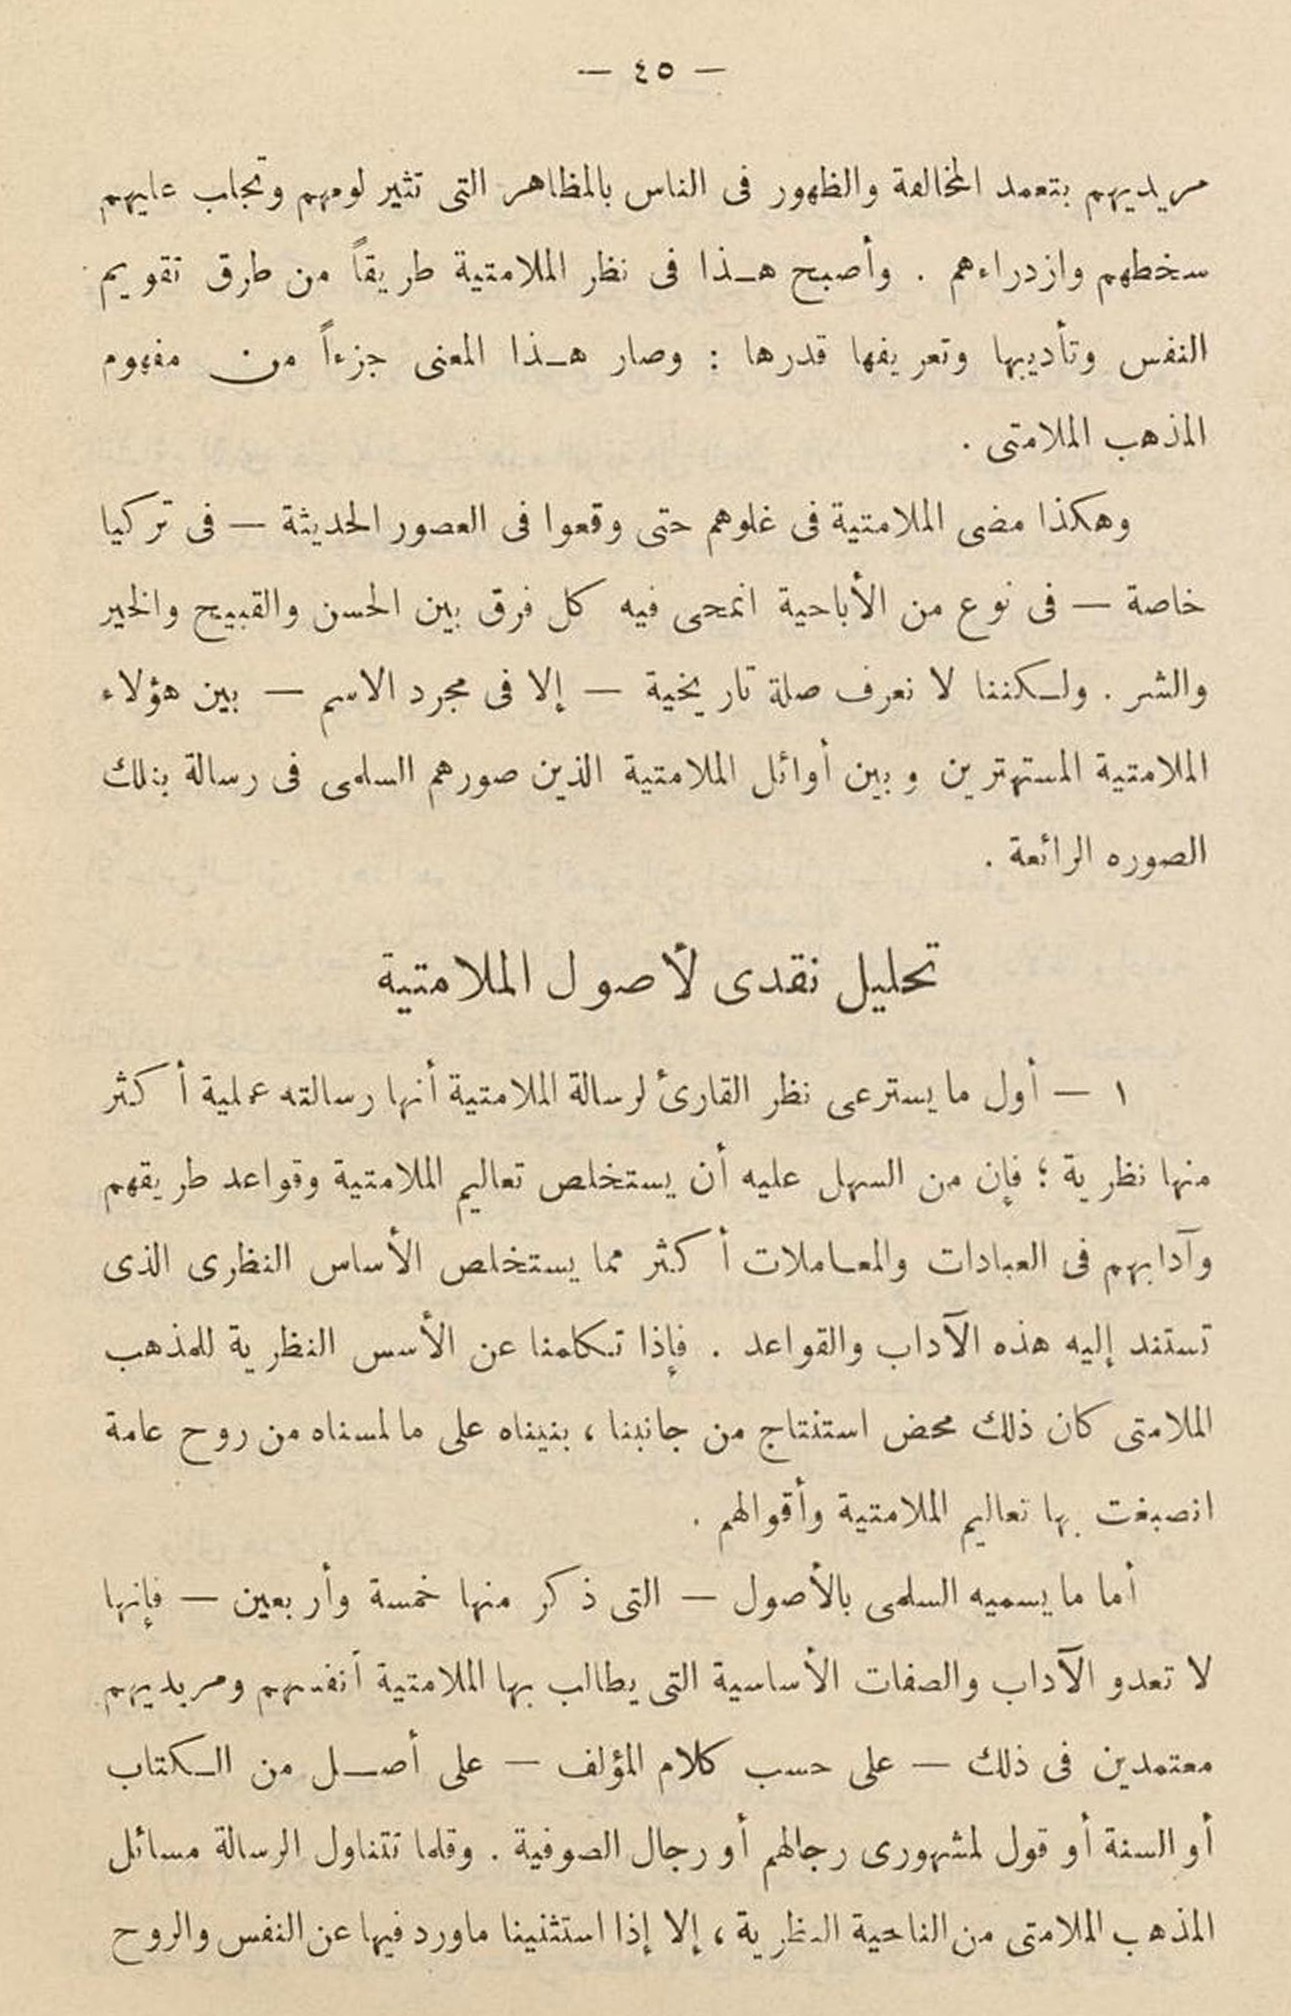 — ٤٥ —
مريديهم بتعمد المخالفة والظهور فى الناس بالمظاهر التى تثير لومهم وتجلب عليهم
سخطهم وازدراءهم . وأصبح هـذا فى نظر الملامتية طريقاً من طرق تقويم
النفس وتأديبها وتعريفها قدرها : وصار هـذا المعنى جزءاً من مفهوم
المذهب الملامتى .
وهكذا مضى الملامتية فى غلوهم حتى وقعوا فى العصور الحديثة — فى تركيا
خاصة — فى نوع من الأباحية انمحى فيه كل فرق بين الحسن والقبيح والخير
والشر . ولـكننا لا نعرف صلة تاريخية — إلا فى مجرد الاسم — بين هؤلاء
الملامتية المستهترين وبين أوائل الملامتية الذين صورهم السلمى فى رسالة بذلك
الصوره الرائعة .
تحليل نقدى لأصول الملامتية
١ — أول ما يسترعى نظر القارئ لرسالة الملامتية أنها رسالته عملية أكثر
منها نظرية ؛ فإن من السهل عليه أن يستخلص تعاليم الملامتية وقواعد طريقهم
وآدابهم فى العبادات والمعـاملات أكثر مما يستخلص الأساس النظرى الذى
تستند إليه هذه الآداب والقواعد . فإذا تـكلمنا عن الأسس النظرية للمذهب
الملامتى كان ذلك محض استنتاج من جانبنا ، بنيناه على ما لمسناه من روح عامة
انصبغت بها تعاليم الملامتية وأقوالهم .
أما ما يسميه السلمى بالأصول — التى ذكر منها خمسة وأربعين — فإنها
لا تعدو الآداب والصفات الأساسية التى يطالب بها الملامتية أنفسهم ومريديهم
معتمدين فى ذلك — على حسب كلام المؤلف — على أصـــل من الـكتاب
أو السنة أو قول لمشهورى رجالهم أو رجال الصوفية . وقلما تتناول الرسالة مسائل
المذهب الملامتى من الناحية النظرية ، إلا إذا استثنينا ماورد فيها عن النفس والروح